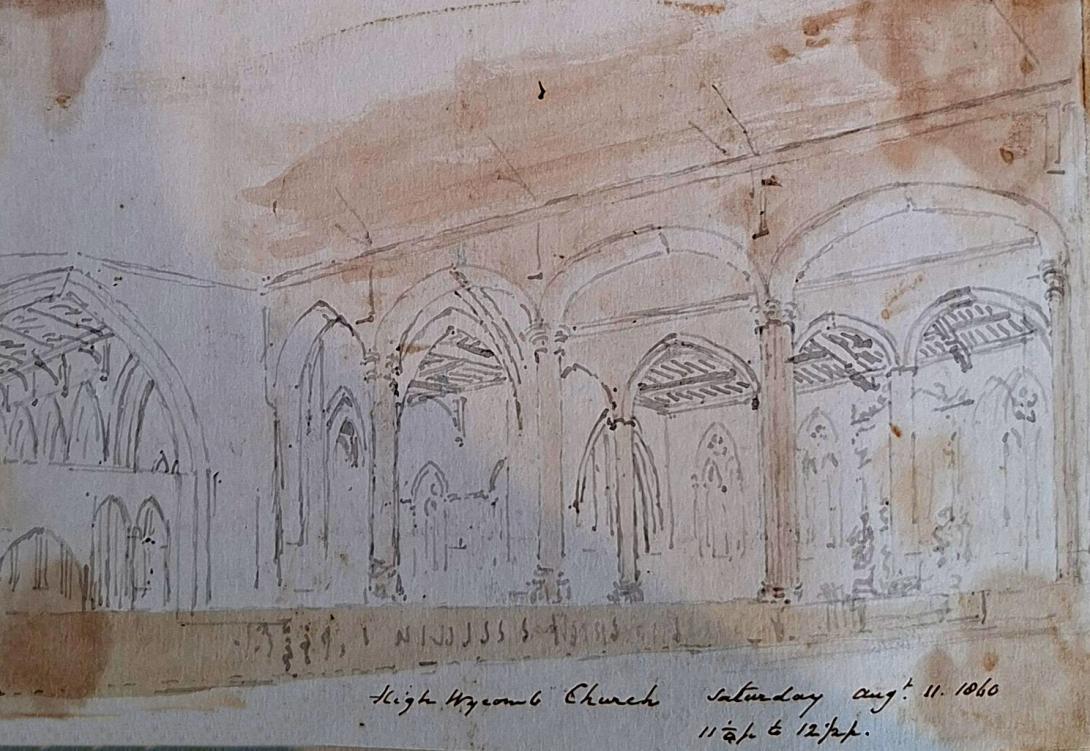 High Wycomb Church Saturday Augt. 11. 1860
11 ½ p to 12 ½ p.